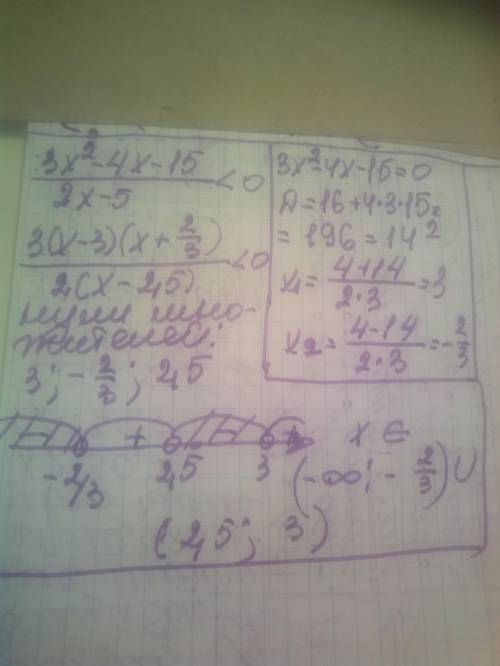 3x²-4x-15 / 2x-5 < 0
3(x-3)(x+2/3) / 2(x-2,5) < 0
нули мно-
жителей:
3; -2/3; 2,5
3x²-4x-15=0
D=16+4·3·15=
=196=14²
x₁= 4+14 / 2·3 =3
x₂= 4-14 / 2·3 =-2/3
- + - +
-2/3 2,5 3
x ∈
(-∞; -2/3) ∪
(2,5; 3)